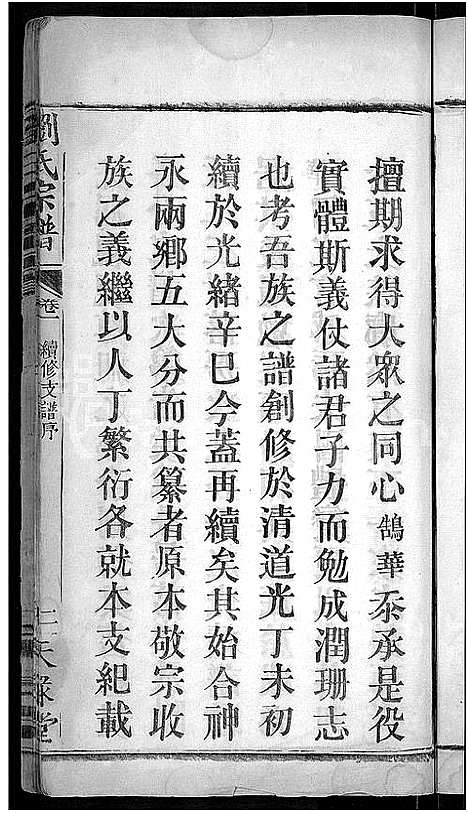 擅期求得大眾之同心鵠華忝承是役
實體斯義仗諸君子力而勉成潤珊志
也考吾族之譜創修於清道光丁未初
續於光緒辛巳今蓋再續矣其始合神
永兩鄉五大分而共纂者原本敬宗收
族之義繼以人丁繁衍各就本支紀載
劉氏宗譜
卷
續修支譜序
天祿堂